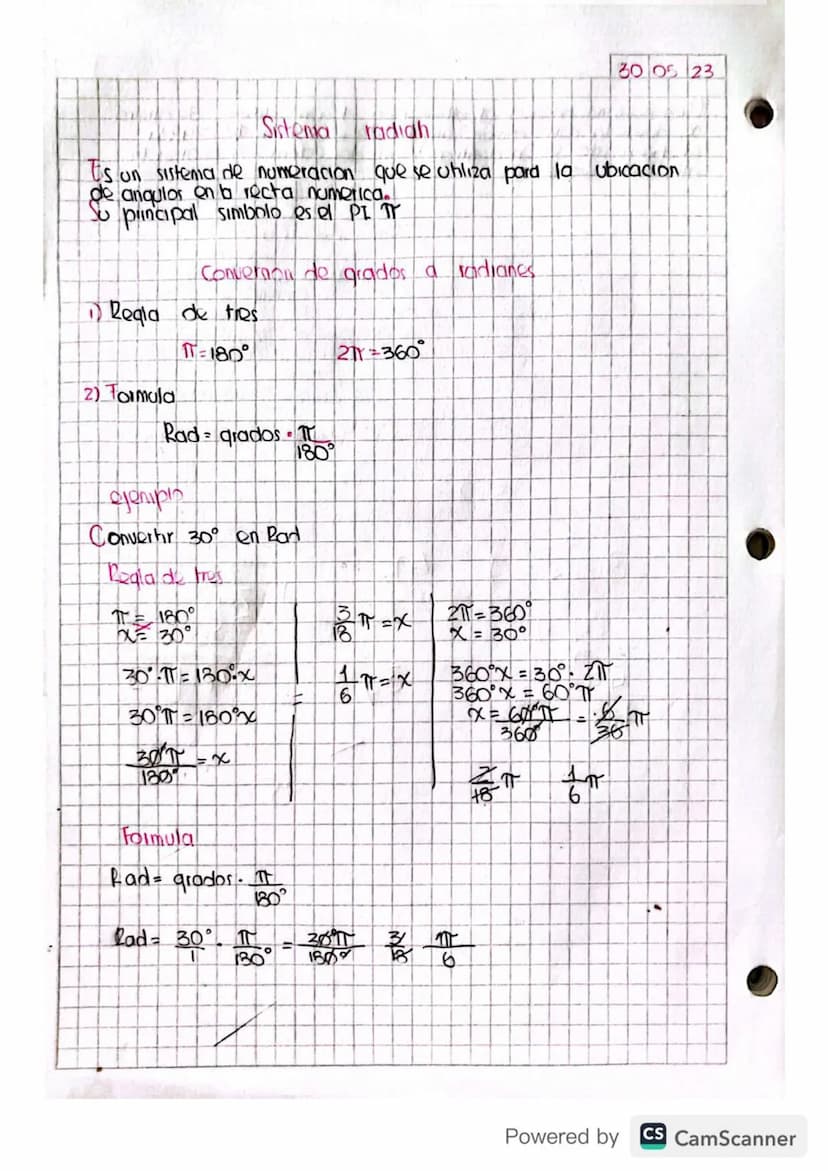 30 05 23
Sistema radian
Es un sistema de numeracion que se utiliza para la ubicacion
de angulos en la recta numerica.
Su principal simbolo es el PI π
Conversion de grados a radianes
1) Regla de tres
π = 180° 2π = 360°
2) Formula
Rad = grados · π/180°
ejemplo
Convertir 30° en Rad
Regla de tres
π = 180°
x = 30°
30° · π = 180° · x
30°π = 180°x
30°π/180° = x
=
3/18 π = x
1/6 π = x
2π = 360°
x = 30°
360°x = 30° · 2π
360°x = 60°π
x = 60°π/360° = 6/36 π
2/18 π 1/6 π
Formula
Rad = grados · π/180°
Rad = 30°/1 · π/180° = 30°π/180° 3/18 π/6
Powered by CS CamScanner